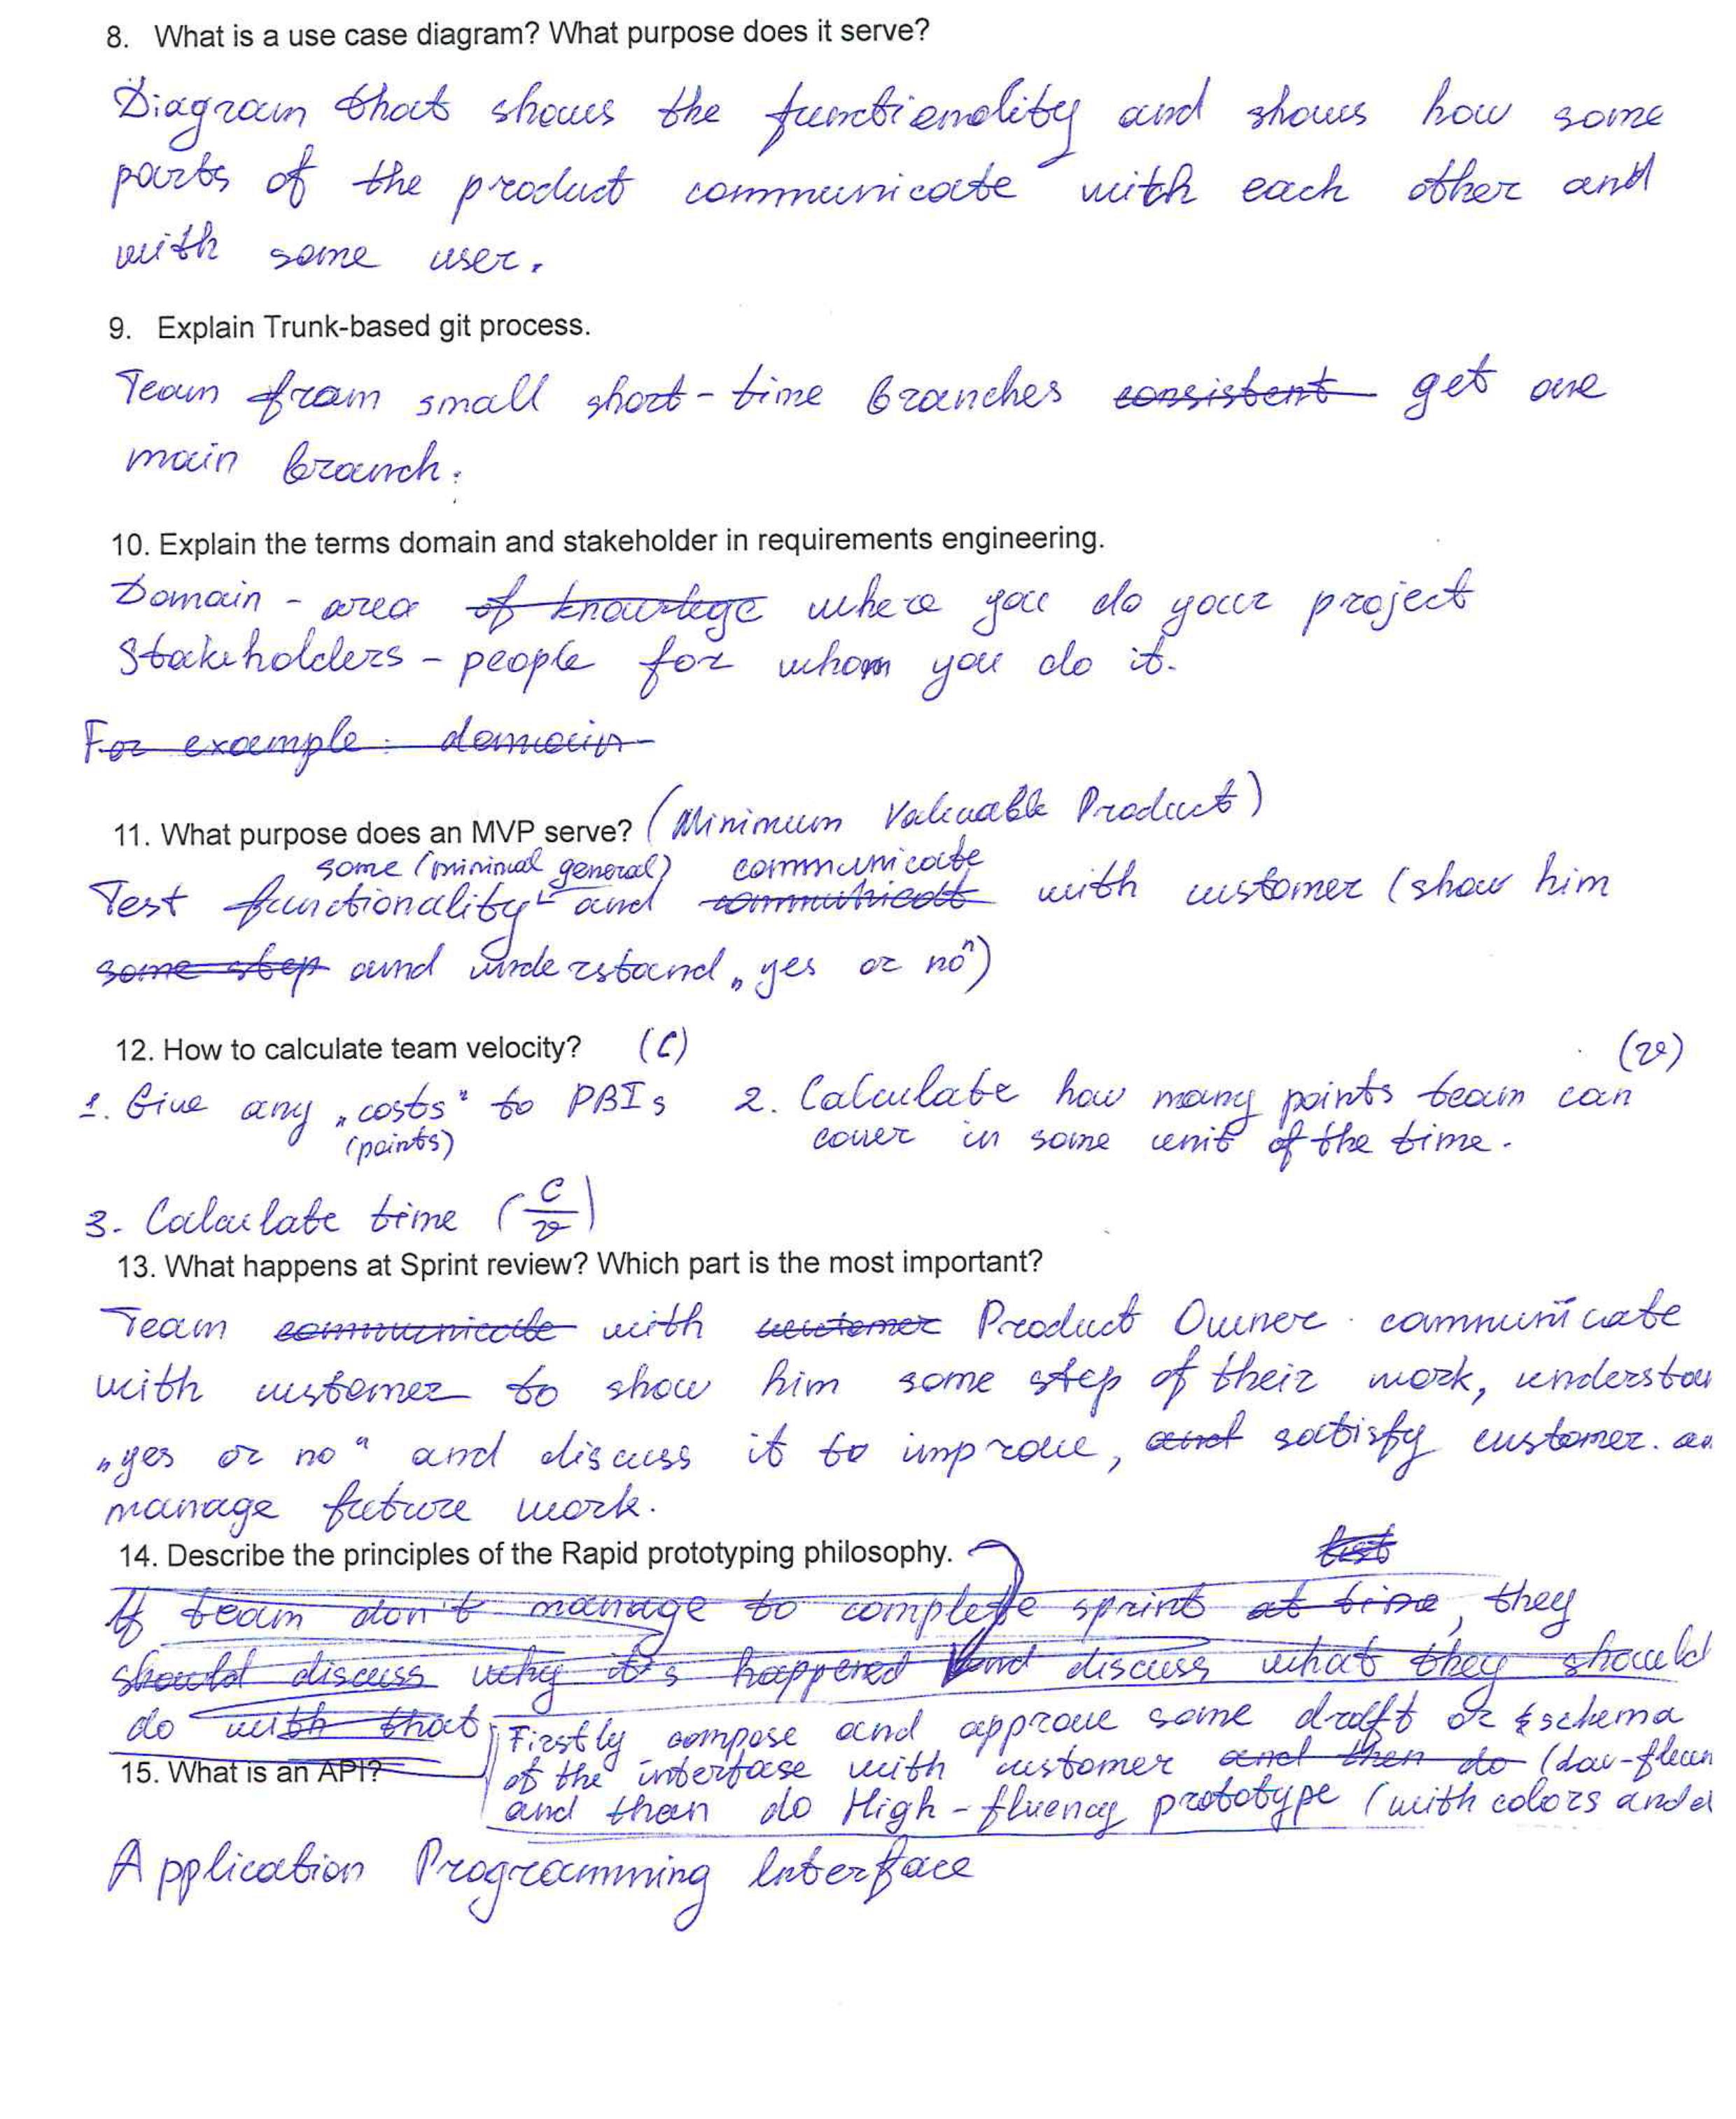 8. What is a use case diagram? What purpose does it serve?
Diagram that shows the functionality and shows how some
parts of the product communicate with each other and
with some user.
9. Explain Trunk-based git process.
Team from small short-time branches consistent get one
main branch.
10. Explain the terms domain and stakeholder in requirements engineering.
Domain - area of knowlege where you do your project
Stakeholders - people for whom you do it.
For example: domain
11. What purpose does an MVP serve? (Minimum Valuable Product)
some (minimal general) communicate
Test functionality and communicate with customer (show him
some step and understand „yes or no")
12. How to calculate team velocity? (C) (v)
1. Give any „costs" to PBIs 2. Calculate how many points team can
(points) cover in some unit of the time.
3. Calculate time (C/v)
13. What happens at Sprint review? Which part is the most important?
Team communicate with customer Product Owner communicate
with customer to show him some step of their work, understan
„yes or no" and discuss it to improve, and satisfy customer. an
manage future work.
14. Describe the principles of the Rapid prototyping philosophy.
If team don't manage to complete sprint at time, they
should discuss why it's happened and discuss what they should
do with that
Firstly compose and approve some draft or schema
of the interfase with customer and then do (low-fluen
15. What is an API?
and then do High-fluency prototype (with colors and
Application Programming Interface